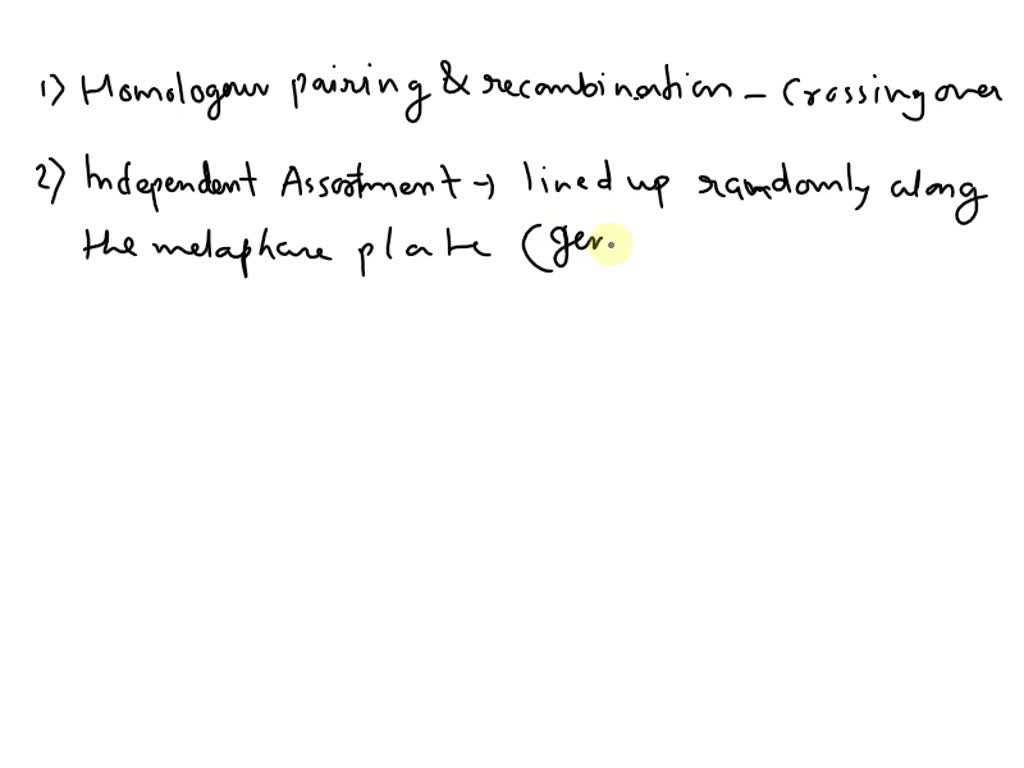 1) Homologous pairing & recombination - Crossing over
2) Independent Assortment → lined up randomly along
the metaphase plate (gen.